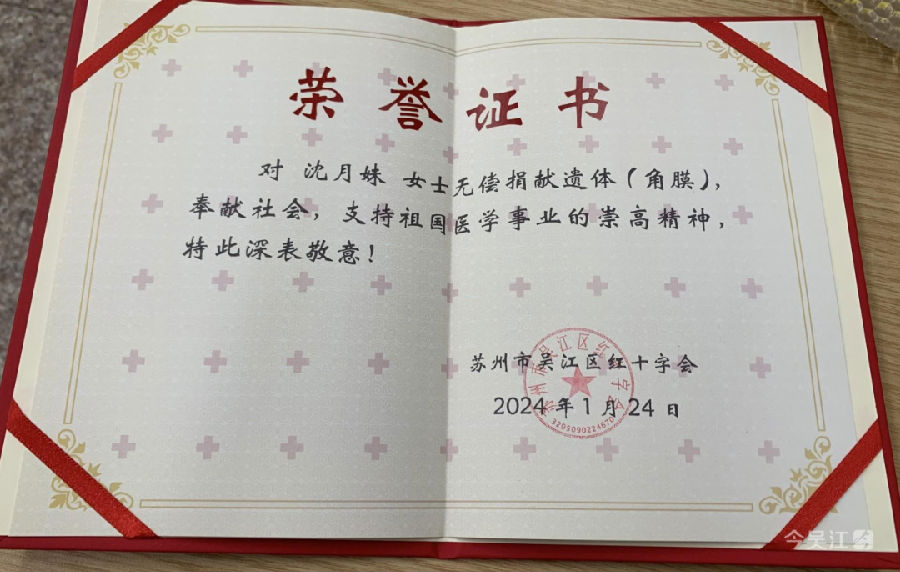 荣誉证书
对 沈月妹 女士无偿捐献遗体（角膜），
奉献社会，支持祖国医学事业的崇高精神，
特此深表敬意！
苏州市吴江区红十字会
2024 年 1 月 24 日
苏州市吴江区红十字会
今吴江